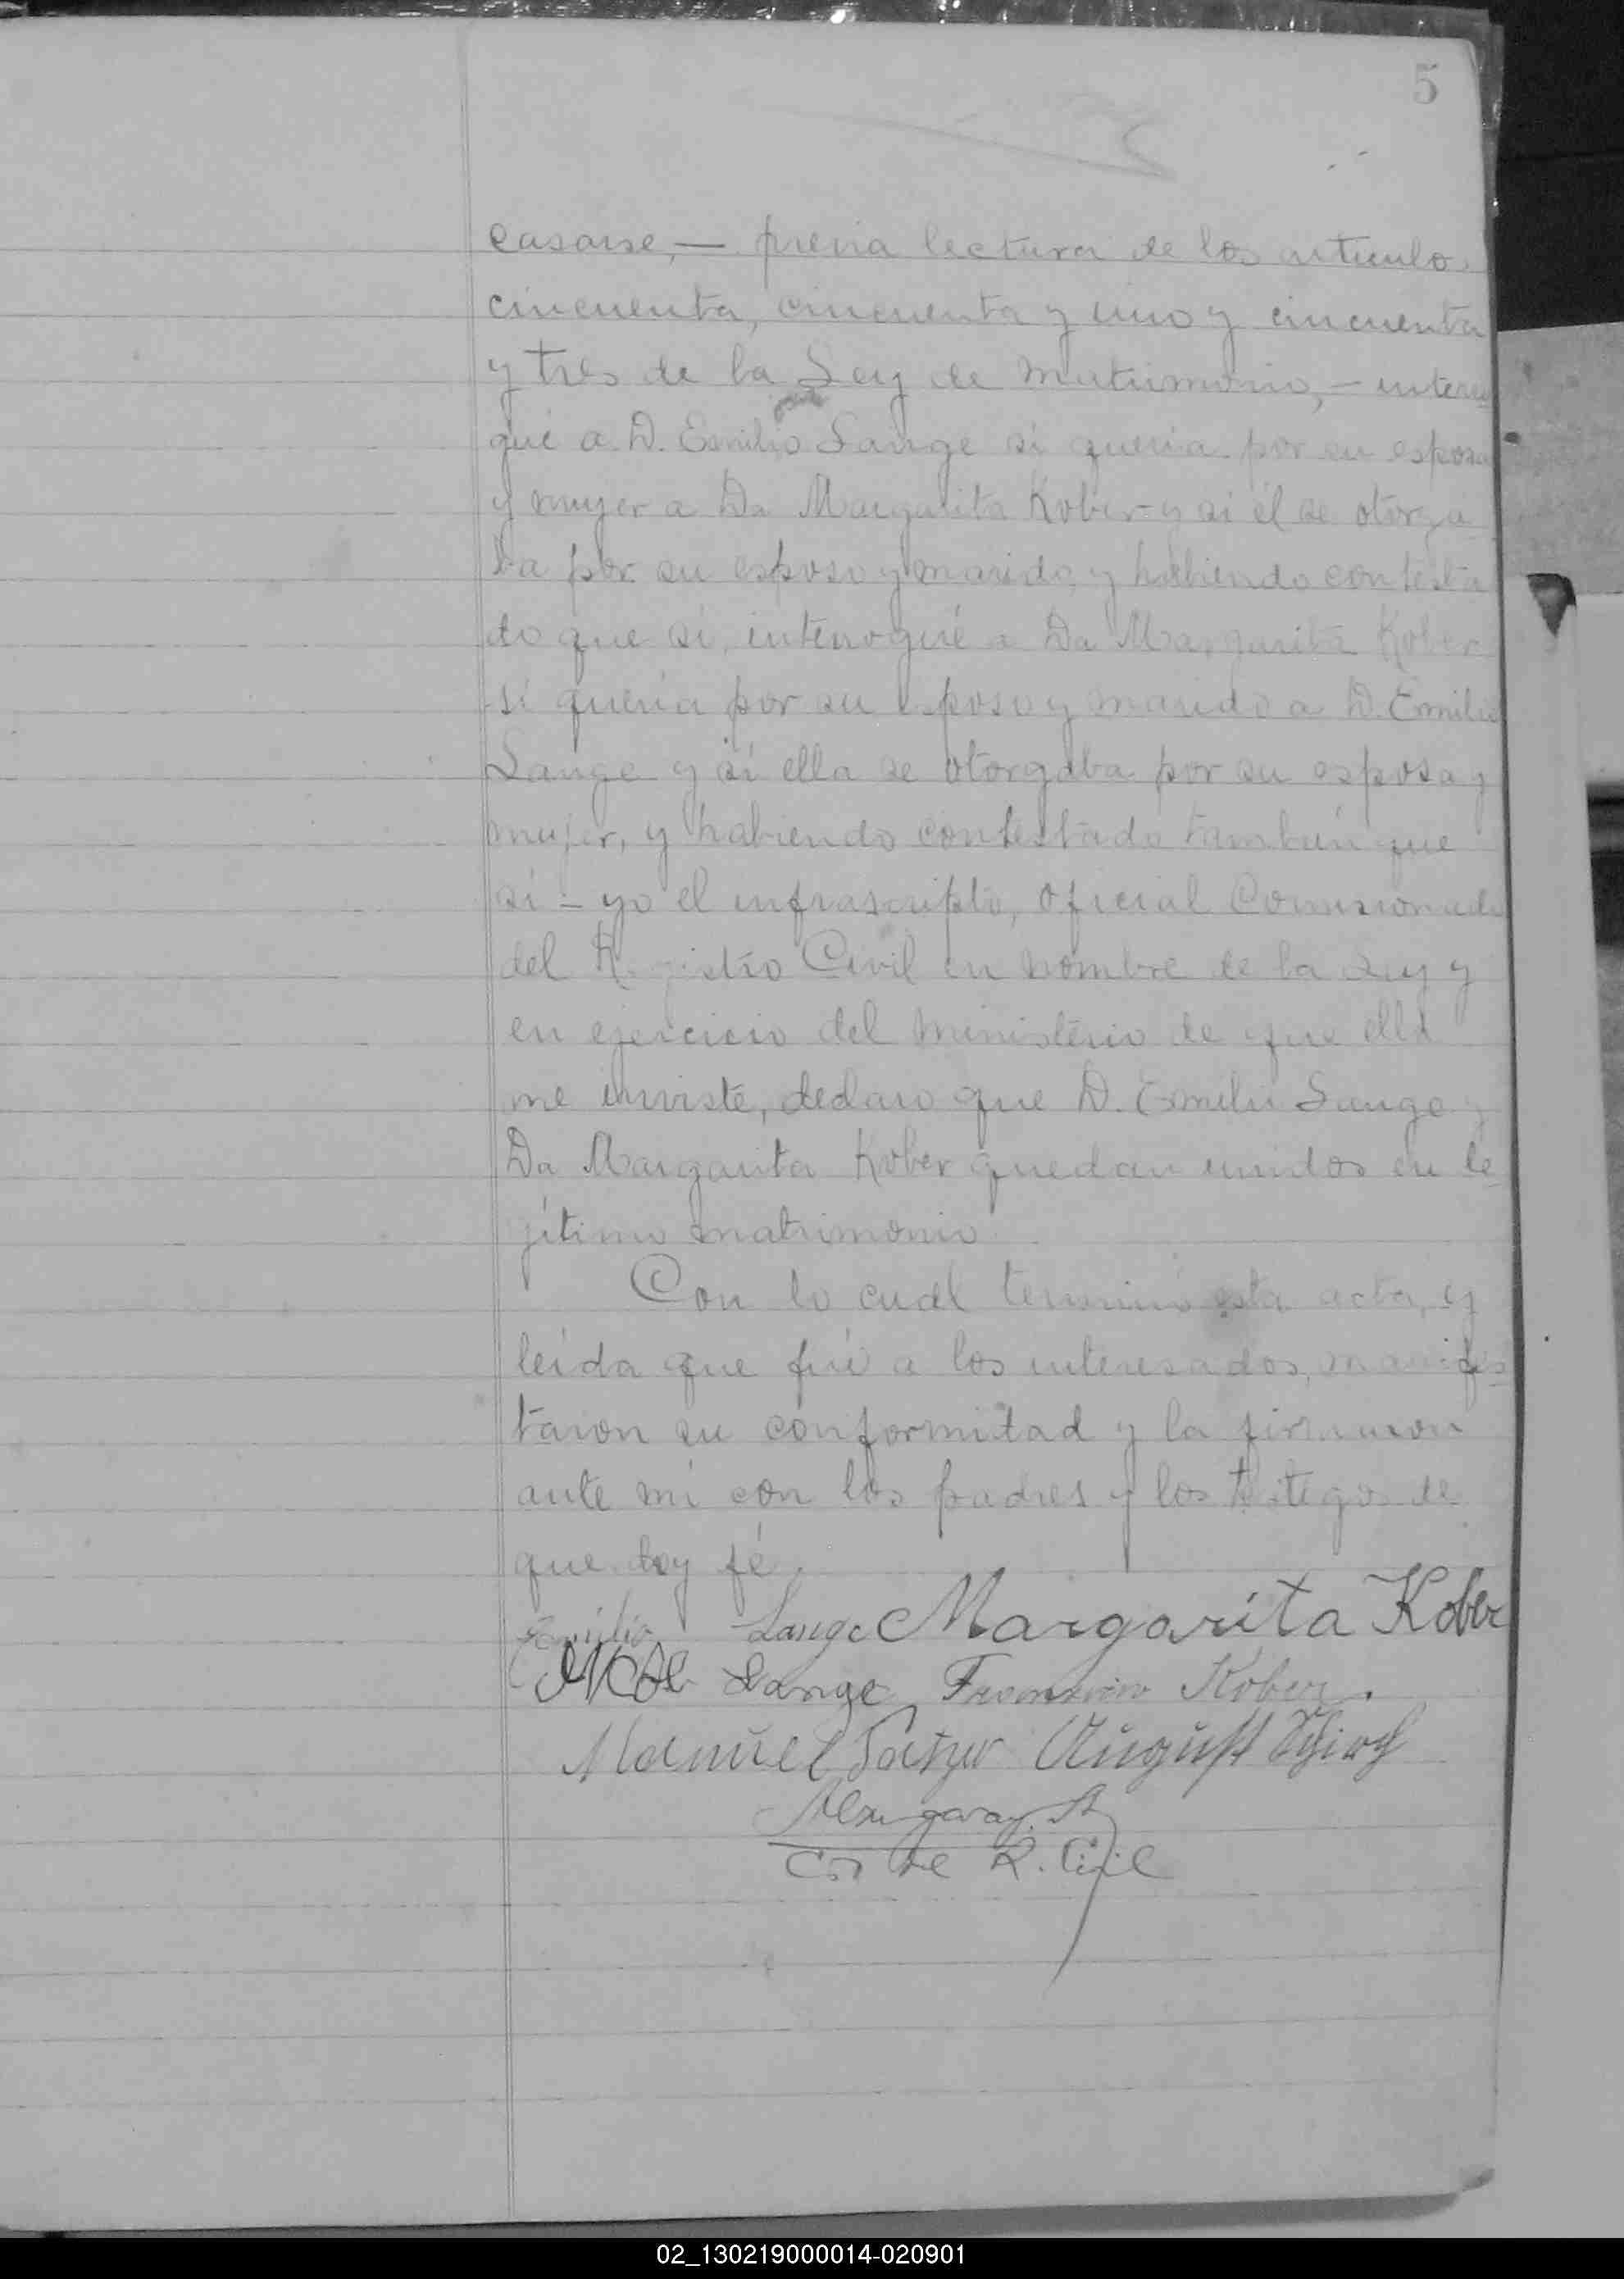 5
casarse, — previa lectura de los articulos
cincuenta, cincuenta y uno y cincuenta
y tres de la Ley de Matrimonio, — interro
gué a D. Emilio Lange si queria por su esposa
y mujer a Da Margarita Kober y si él se otorga
ba por su esposo y marido, y habiendo contesta
do que si, interrogué a Da Margarita Kober
si queria por su esposo y marido a D. Emilio
Lange y si ella se otorgaba por su esposa y
mujer, y habiendo contestado tambien que
si — yo el infrascripto, Oficial Comisionado
del Registro Civil en nombre de la Ley y
en ejercicio del Ministerio de que ella
me inviste, declaro que D. Emilio Lange y
Da Margarita Kober quedan unidos en le
jítimo matrimonio
Con lo cual terminó esta acta, y
leída que fué a los interesados, manifes
taron su conformidad y la firmaron
ante mí con los padres y los testigos de
que doy fé.
Emilio Lange Margarita Kober
Lange Kober
Manuel August
R. Civil
02_130219000014-020901